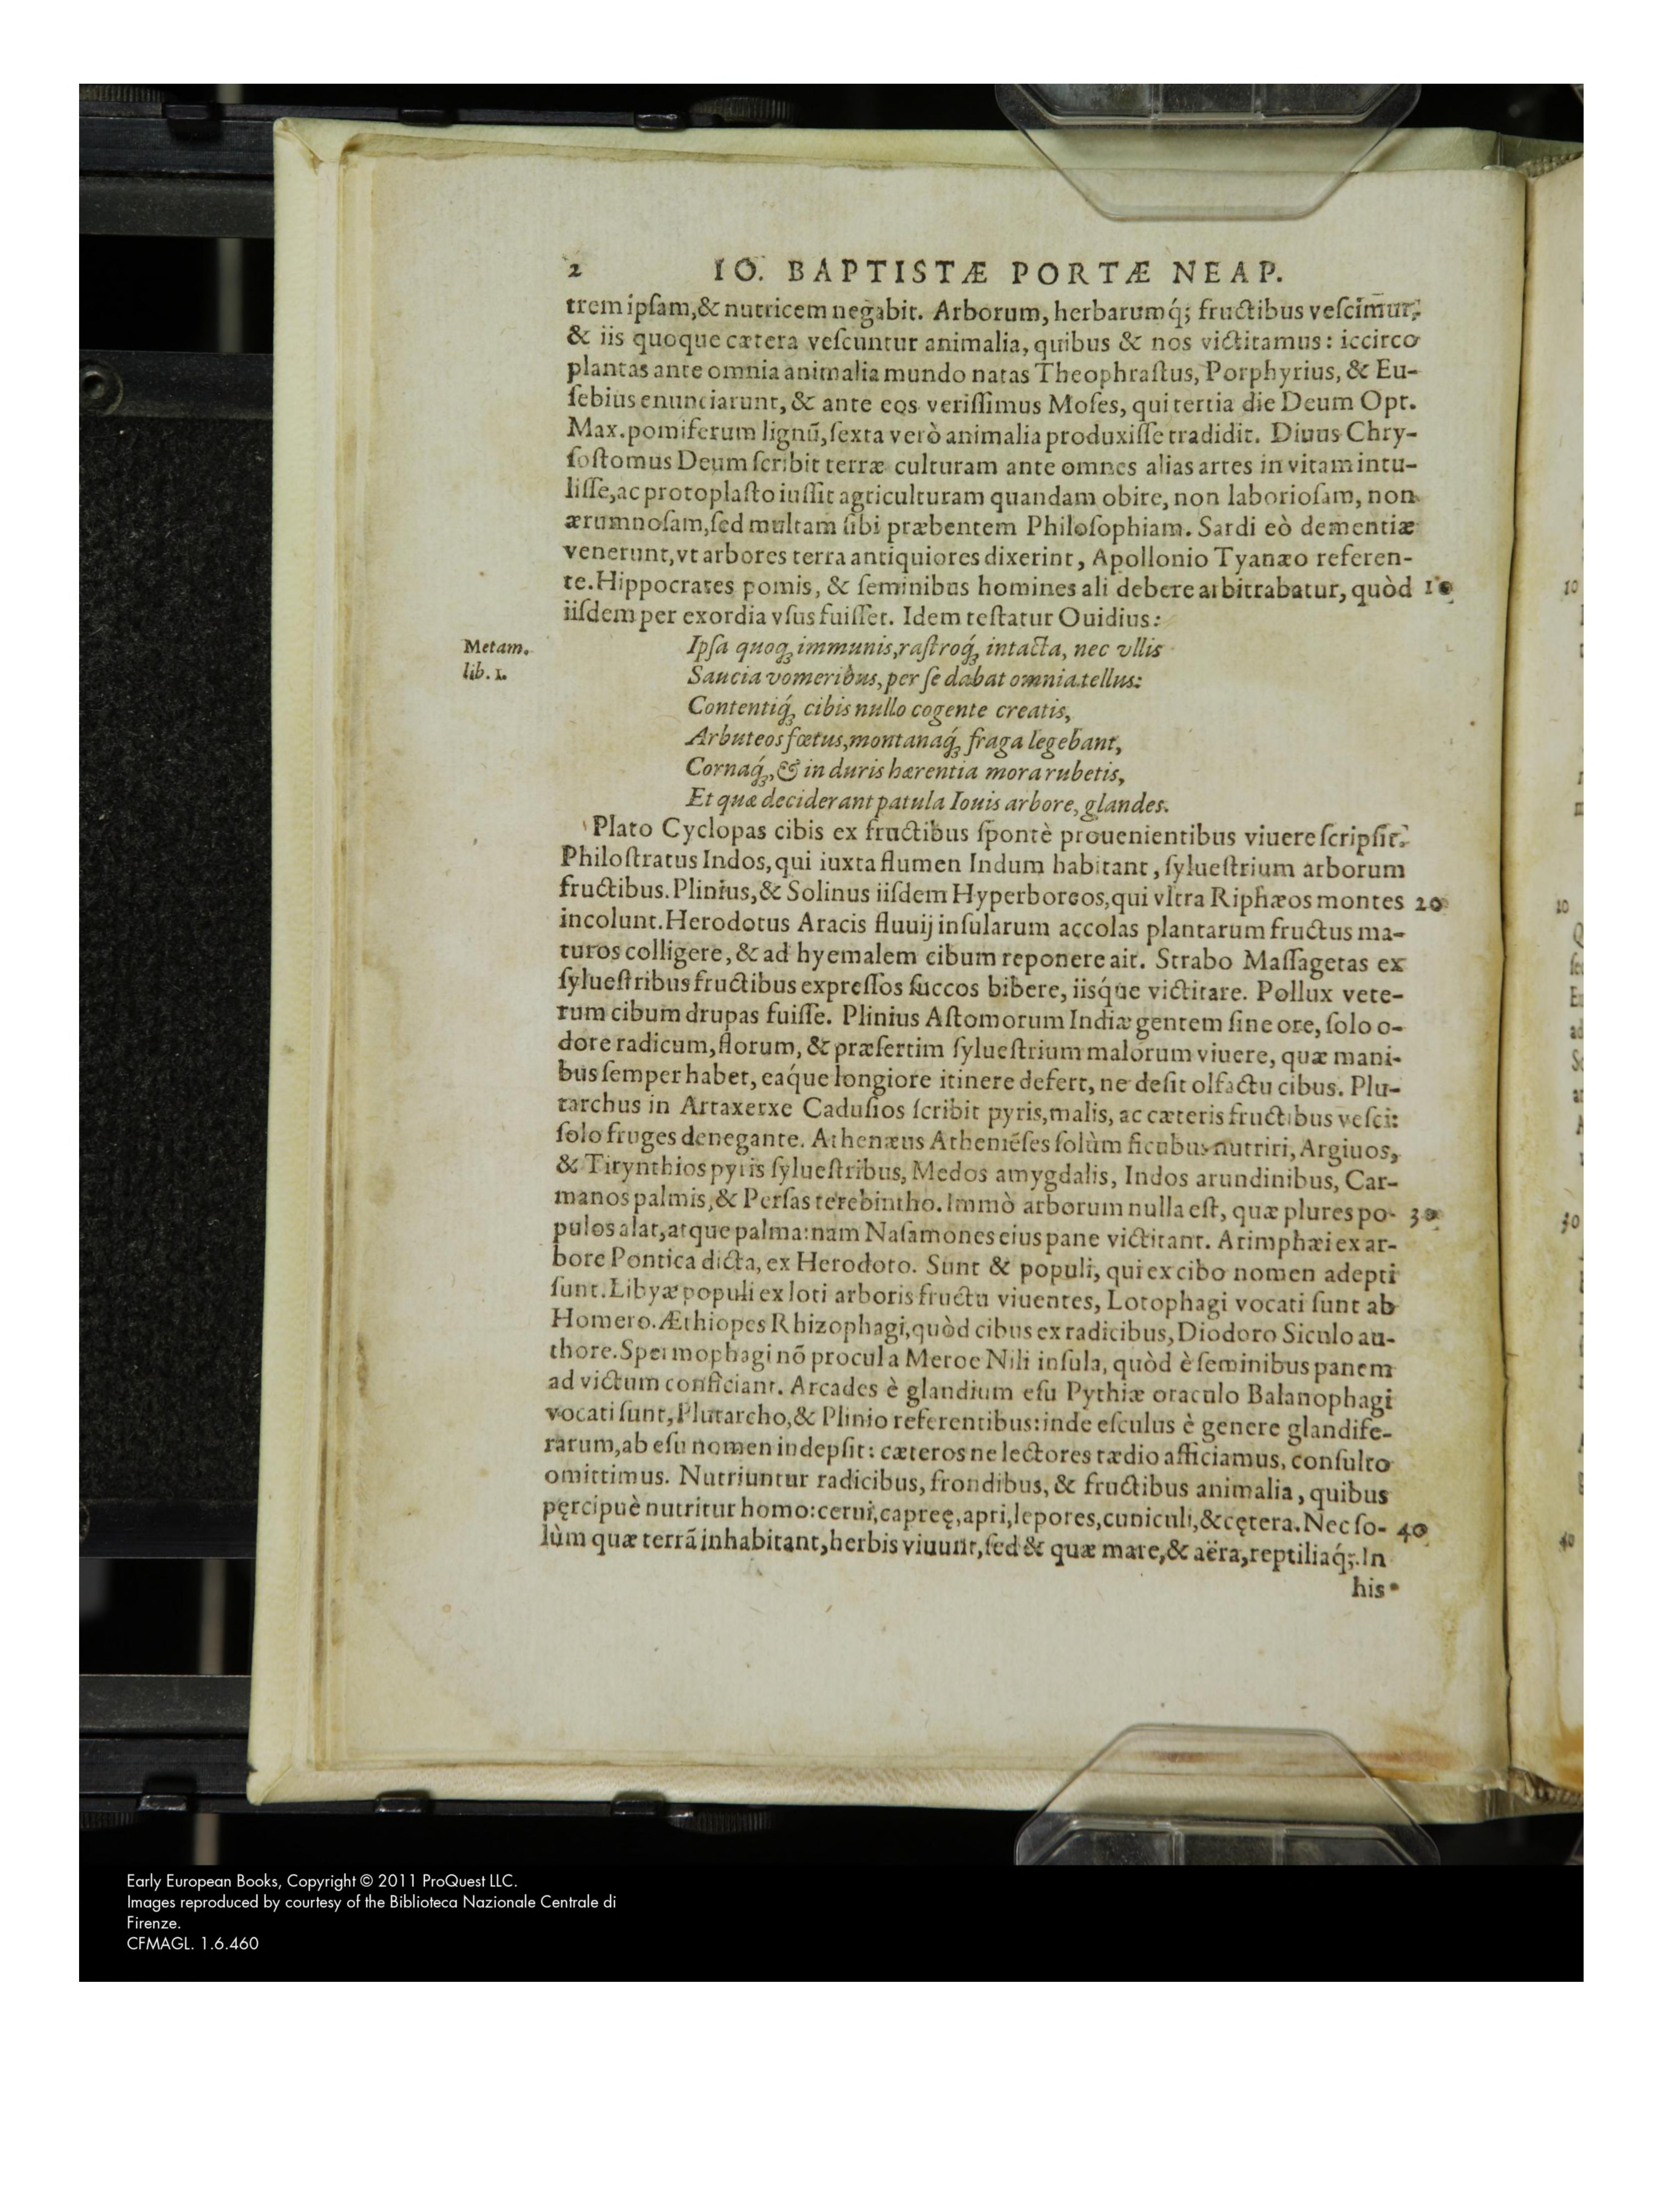 2 IO. BAPTISTÆ PORTÆ NEAP.
trem ipſam,& nutricem negabit. Arborum, herbarumq́; fructibus veſcimur,
& iis quoque cætera veſcuntur animalia, quibus & nos victitamus: iccirco
plantas ante omnia animalia mundo natas Theophraſtus, Porphyrius, & Eu-
ſebius enunciarunt, & ante eos veriſſimus Moſes, qui tertia die Deum Opt.
Max. pomiferum lignũ, ſexta verò animalia produxiſſe tradidit. Diuus Chry-
ſoſtomus Deum ſcribit terræ culturam ante omnes alias artes in vitam intu-
liſſe, ac protoplaſto iuſſit agriculturam quandam obire, non laborioſam, non
ærumnoſam, ſed multam ſibi præbentem Philoſophiam. Sardi eò dementiæ
venerunt, vt arbores terra antiquiores dixerint, Apollonio Tyanæo referen-
te. Hippocrates pomis, & ſeminibus homines ali debere arbitrabatur, quòd 10
iiſdem per exordia vſus fuiſſet. Idem teſtatur Ouidius:
Metam. Ipſa quoq; immunis, raſtroq́; intacta, nec vllis
lib. 1. Saucia vomeribus, per ſe dabat omnia tellus:
Contentiq́; cibis nullo cogente creatis,
Arbuteos fœtus, montanaq́; fraga legebant,
Cornaq́;, & in duris hærentia mora rubetis,
Et quæ deciderant patula Iouis arbore, glandes.
Plato Cyclopas cibis ex fructibus ſpontè prouenientibus viuere ſcripſit.
Philoſtratus Indos, qui iuxta flumen Indum habitant, ſylueſtrium arborum
fructibus. Plinius, & Solinus iiſdem Hyperboreos, qui vltra Riphæos montes 20
incolunt. Herodotus Aracis fluuij inſularum accolas plantarum fructus ma-
turos colligere, & ad hyemalem cibum reponere ait. Strabo Maſſagetas ex
ſylueſtribus fructibus expreſſos ſuccos bibere, iisq́ue victitare. Pollux vete-
rum cibum drupas fuiſſe. Plinius Aſtomorum Indiæ gentem ſine ore, ſolo o-
dore radicum, florum, & præſertim ſylueſtrium malorum viuere, quæ mani-
bus ſemper habet, eaq́ue longiore itinere defert, ne deſit olfactu cibus. Plu-
tarchus in Artaxerxe Caduſios ſcribit pyris, malis, ac cæteris fructibus veſci:
ſolo fruges denegante. Athenæus Atheniẽſes ſolùm ficubus nutriri, Argiuos,
& Tirynthios pyris ſylueſtribus, Medos amygdalis, Indos arundinibus, Car-
manos palmis, & Perſas terebintho. Immò arborum nulla eſt, quæ plures po- 30
pulos alat, atque palma: nam Naſamones eius pane victitant. Arimphæi ex ar-
bore Pontica dicta, ex Herodoto. Sunt & populi, qui ex cibo nomen adepti
ſunt. Libyæ populi ex loti arboris fructu viuentes, Lotophagi vocati ſunt ab
Homero. Æthiopes Rhizophagi, quòd cibus ex radicibus, Diodoro Siculo au-
thore. Spermophagi nõ procul a Meroe Nili inſula, quòd è ſeminibus panem
ad victum conficiant. Arcades è glandium eſu Pythiæ oraculo Balanophagi
vocati ſunt, Plutarcho, & Plinio referentibus: inde eſculus è genere glandife-
rarum, ab eſu nomen indepſit: cæteros ne lectores tædio afficiamus, conſulto
omittimus. Nutriuntur radicibus, frondibus, & fructibus animalia, quibus
pęrcipuè nutritur homo: cerui, capreę, apri, lepores, cuniculi, & cętera. Nec ſo- 40
lùm quæ terrã inhabitant, herbis viuunt, ſed & quæ mare, & aëra, reptiliaq́;. In
his
Early European Books, Copyright © 2011 ProQuest LLC.
Images reproduced by courtesy of the Biblioteca Nazionale Centrale di
Firenze.
CFMAGL. 1.6.460